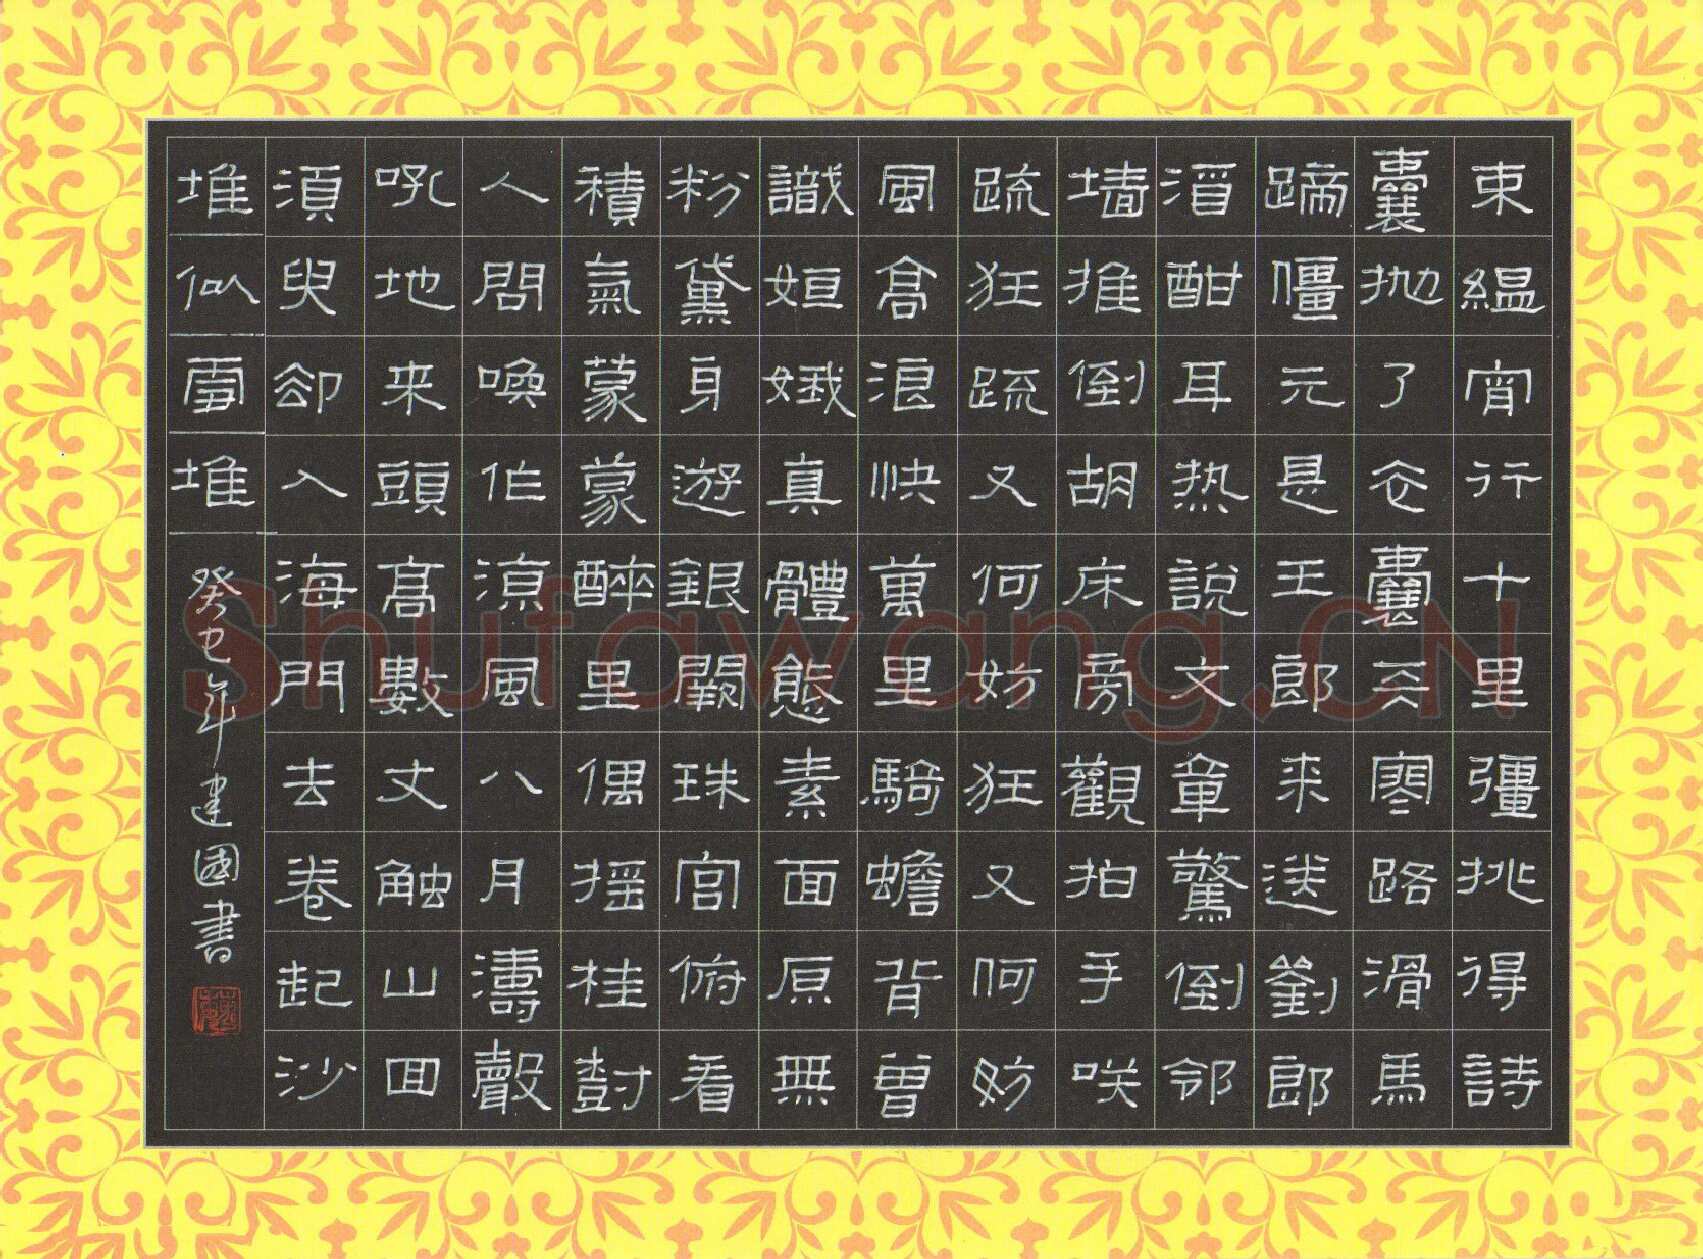 束縕宵行十里彊挑得詩
囊抛了衣囊天寒路滑馬
蹄僵元是王郎来送劉郎
酒酣耳热説文章驚倒邻
墙推倒胡床旁觀拍手咲
疏狂疏又何妨狂又何妨
風高浪快萬里騎蟾背曾
識姮娥真體態素面原無
粉黛身遊銀闕珠宫俯看
積氣蒙蒙醉里偶摇桂樹
人間喚作凉風八月濤聲
吼地来頭高數丈触山回
須臾卻入海門去卷起沙
堆似雪堆
癸巳年建國書
Shufawang.CN